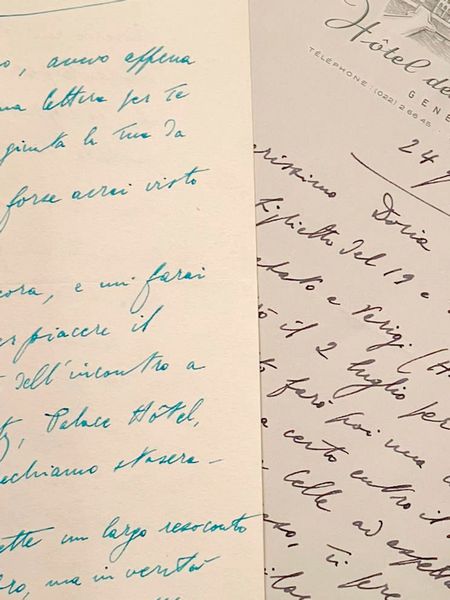 o, avevo appena
una lettera per te
giunta la tua da
forse avrai visto
ncora, e mi farai
per piacere il
dell'incontro a
tz, Palace Hôtel,
echiamo stasera –
ette un largo resoconto
bro, ma in verità
Hôtel de
TÉLÉPHONE: (022) 2 66 45
GENÈ
24
rissimo Doria
biglietto del 19 e
stato a Parigi. (H
rò il 2 luglio per
to farò poi una
a certo entro il
Celle ad aspetta
esso, ti pre